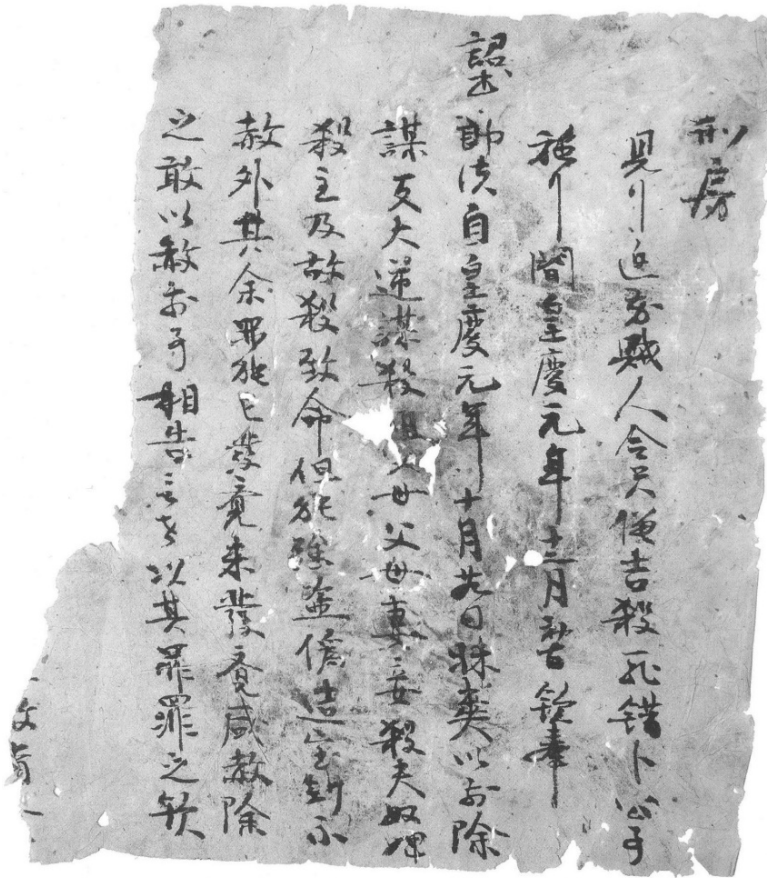 刑房
見行追勾賊人合只吉殺死錯卜公事
施行間皇慶元年十二月欽奉
詔書節該自皇慶元年十月廿日昧爽以前除
謀反大逆謀殺祖父母父母妻妾殺夫奴婢
殺主及故殺致命但犯強盜偽造宝鈔不
赦外其余罪犯已發覺未發覺咸赦除
之敢以赦前事相告言者以其罪罪之欽